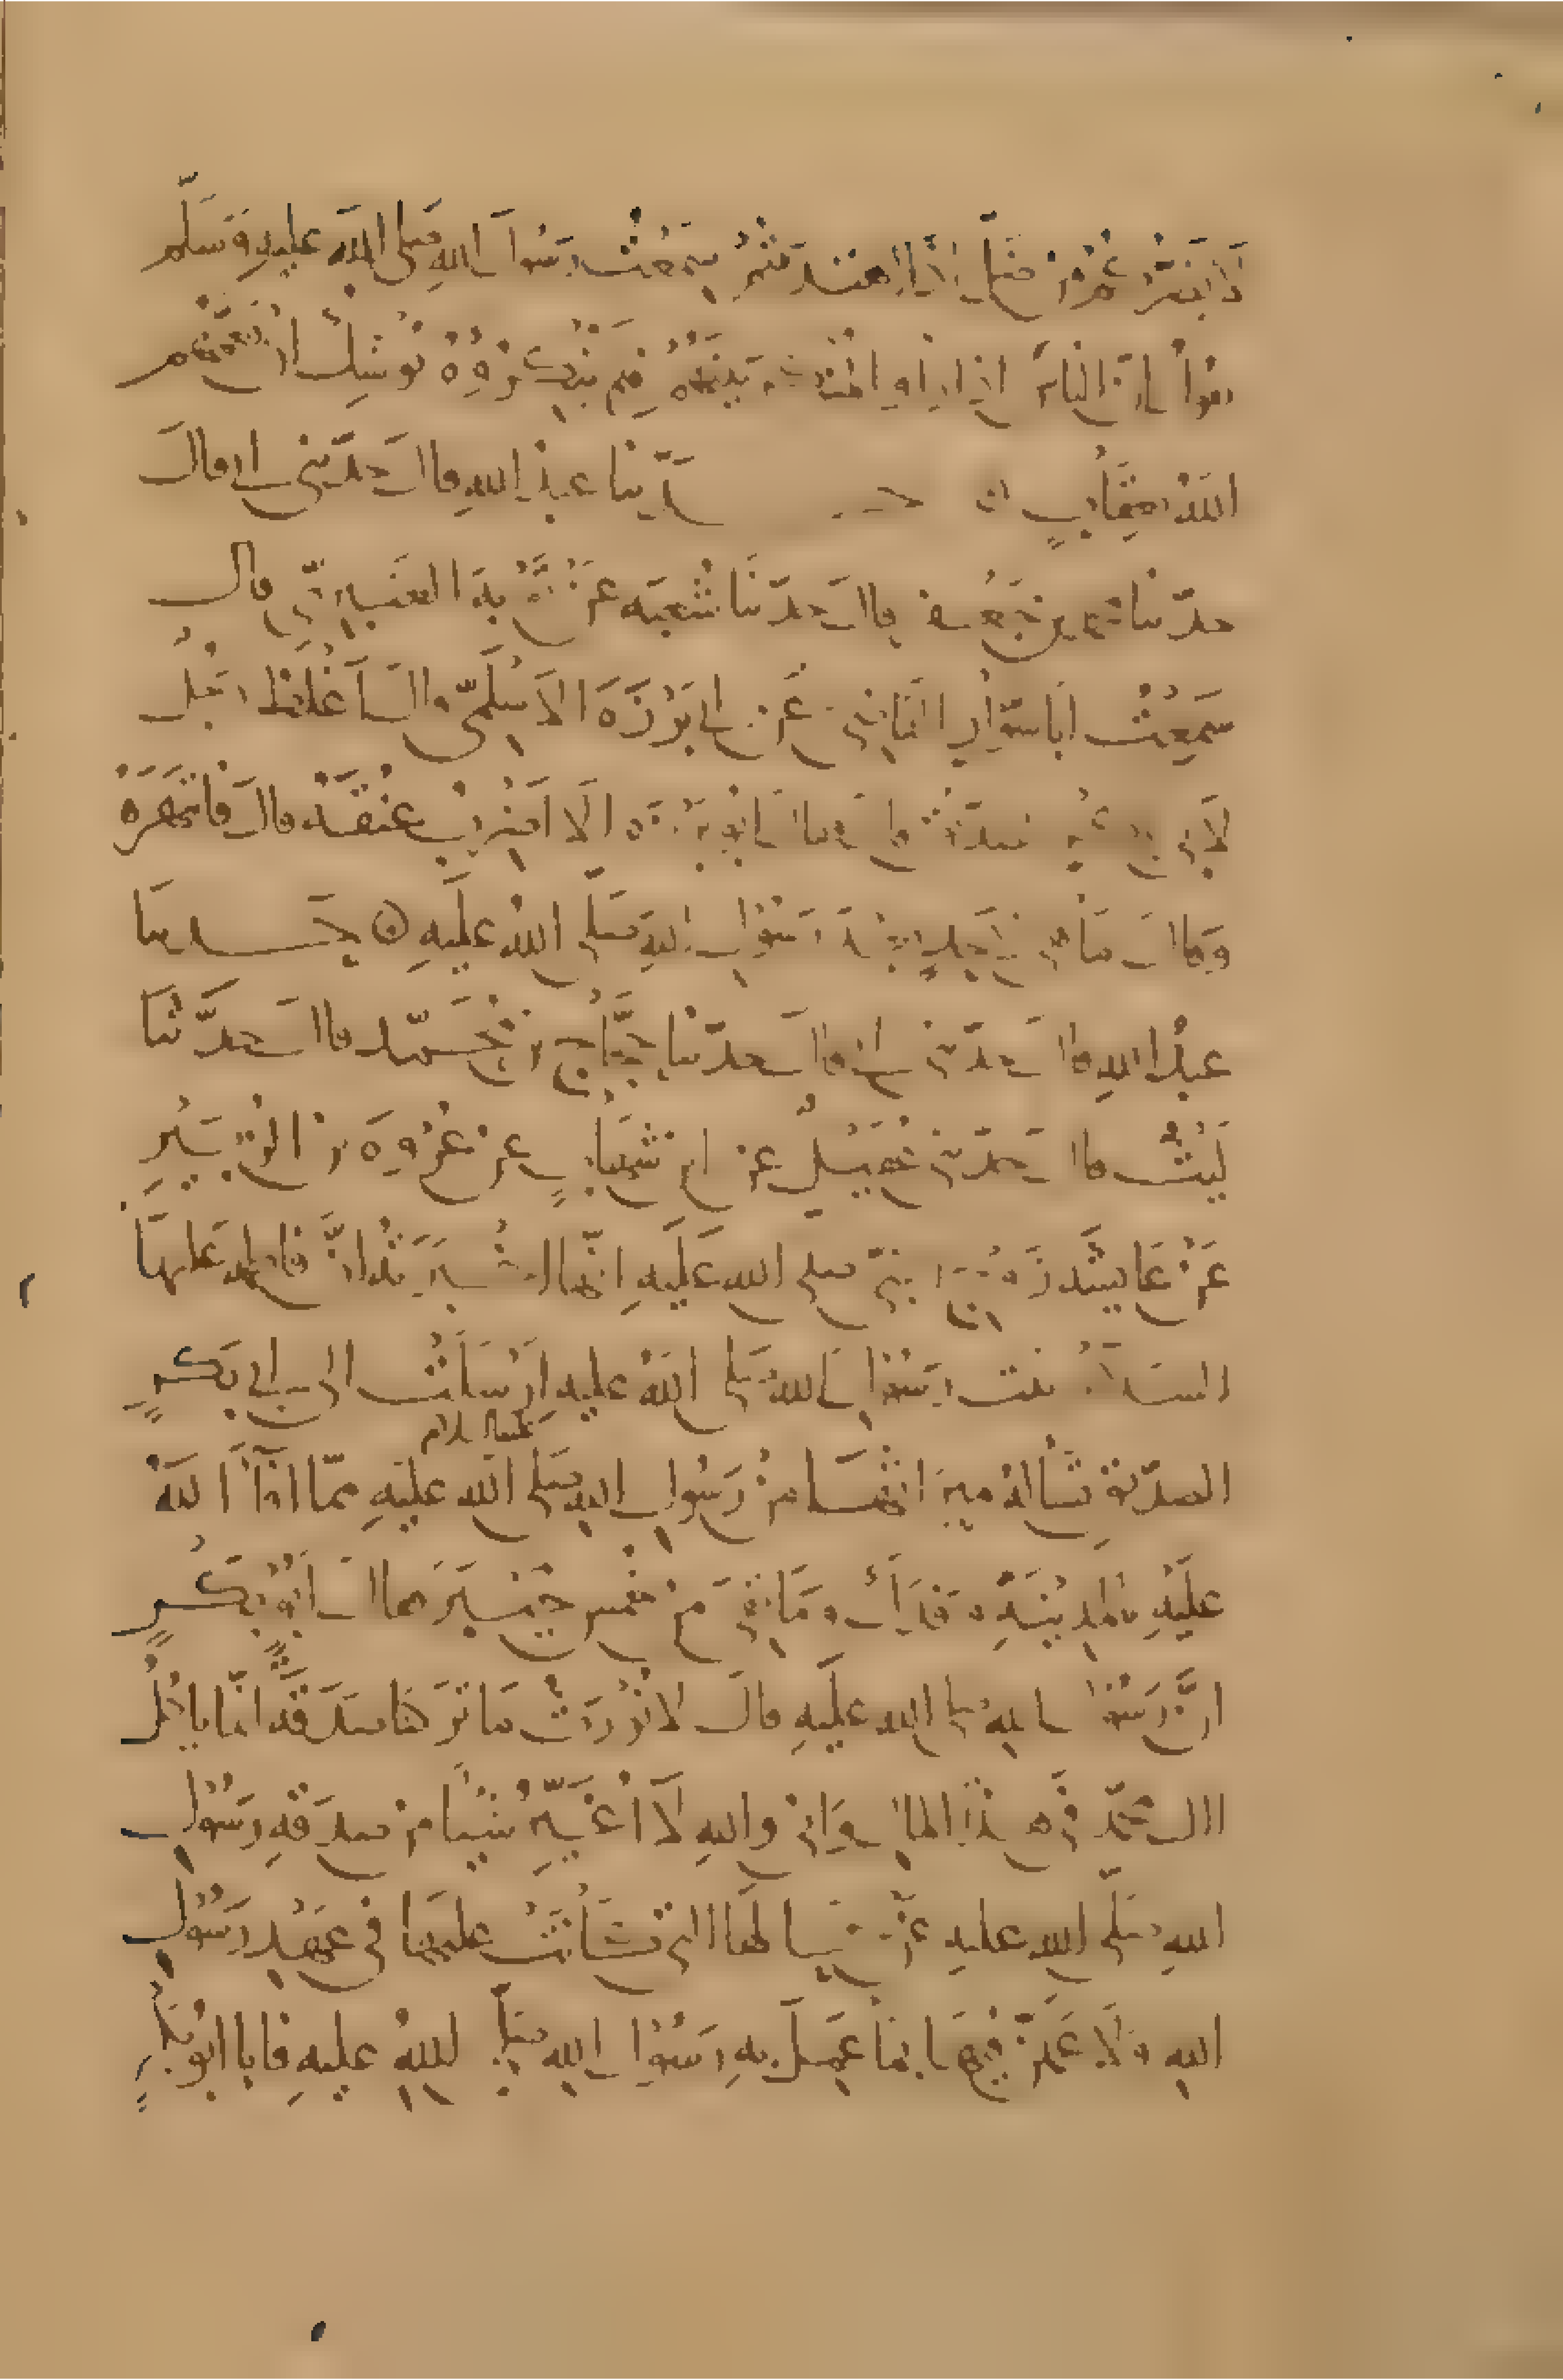 لا يضركم من ضل اذا اهتديتم سمعت رسول الله صلى الله عليه وسلم
يقول ان الناس اذا راوا المنكر بينهم فلم ينكروه يوشك ان يعمهم
الله بعقاب ه حدثنا عبد الله قال حدثني ابي قال
حدثنا محمد بن جعفر قال حدثنا شعبه عن توبة العنبري قال
سمعت ابا سوار القاضي عن ابي برزة الاسلمي قال اغلظ رجل
لابي بكر الصديق قال فقال ابو برزة الا اضرب عنقه قال فانتهره
وقال ما هي لاحد بعد رسول الله صلى الله عليه ه حدثنا
عبد الله قال حدثني ابي قال حدثنا حجاج بن محمد قال حدثنا
ليث قال حدثني عقيل عن ابن شهاب عن عروة بن الزبير
عن عايشة زوج النبي صلى الله عليه انها اخبرته ان فاطمه عليها
السلام بنت رسول الله صلى الله عليه ارسلت الى ابي بكر
عليها السلام
الصديق تساله ميراثها من رسول الله صلى الله عليه مما افآ الله
عليه بالمدينة وفدك وما بقي من خمس خيبر فقال ابو بكر
ان رسول الله صلى الله عليه قال لا نورث ما تركنا صدقة انما ياكل
ال محمد في هذا المال واني والله لا اغير شيا من صدقه رسول
الله صلى الله عليه عن حالها التي كانت عليها في عهد رسول
الله ولاعملن فيها بما عمل به رسول الله صلى الله عليه فابا ابو بكر